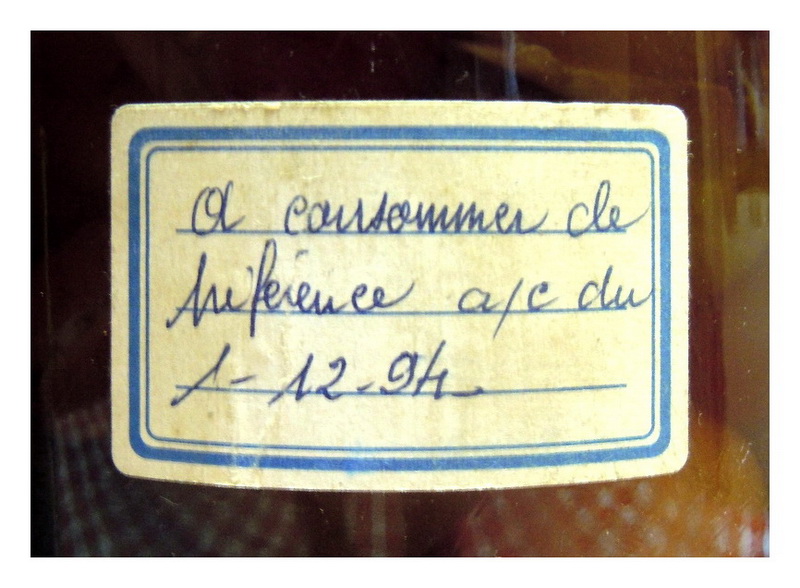 A consommer de
préférence a/c du
1-12-94